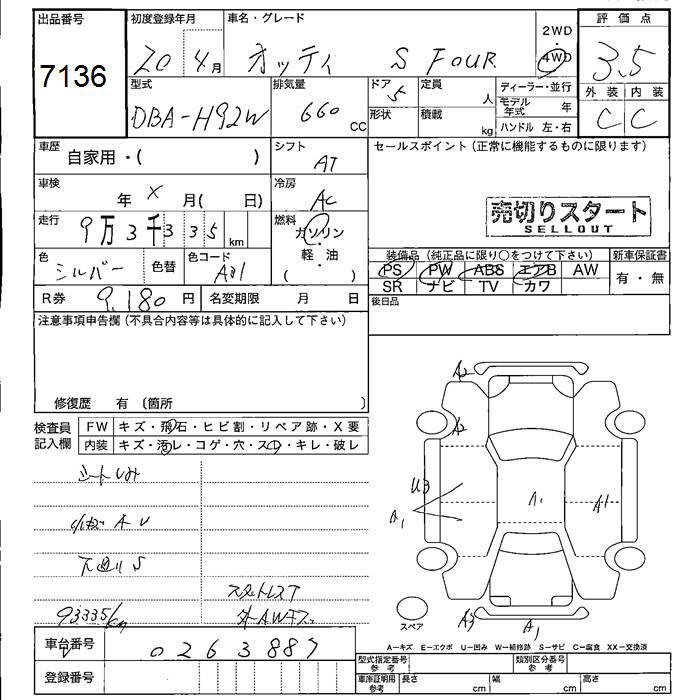 出品番号 初度登録年月 車名・グレード 2WD 評価点
7136 20 4月 オッティ S FOUR 4WD 3.5
型式 排気量 ドア 定員 ディーラー・並行 外装 内装
DBA-H92W 660 cc 5 人 モデル年式 年 C C
形状 積載 kg ハンドル 左・右
車歴 自家用・( ) シフト AT セールスポイント(正常に機能するものに限ります)
車検 年 X 月( 日) 冷房 AC
売切りスタート
SELLOUT
走行 9万3千335km 燃料 ガソリン・軽・油 ( )
色 シルバー 色替 色コード
装備品(純正品に限り○をつけて下さい) 新車保証書
PS PW ABS エアB AW 有・無
SR ナビ TV カワ
R券 9,180円 名変期限 月 日 後日品
注意事項申告欄(不具合内容等は具体的に記入して下さい)
修復歴 有 〔箇所 〕
検査員記入欄 FW キズ・飛石・ヒビ割・リペア跡・X要
内装 キズ・汚レ・コゲ・穴・スレ・キレ・破レ
A2
A2
U3
A1
A1
A1
下廻りS
スタットレスT
93335km
A3
A1
スペア
A-キズ E-エクボ U-凹み W-補修跡 S-サビ C-腐食 XX-交換済
車台番号 0263887
登録番号
型式指定番号 参考 類別区分番号 参考
車庫証明用 参考 長さ cm 幅 cm 高さ cm